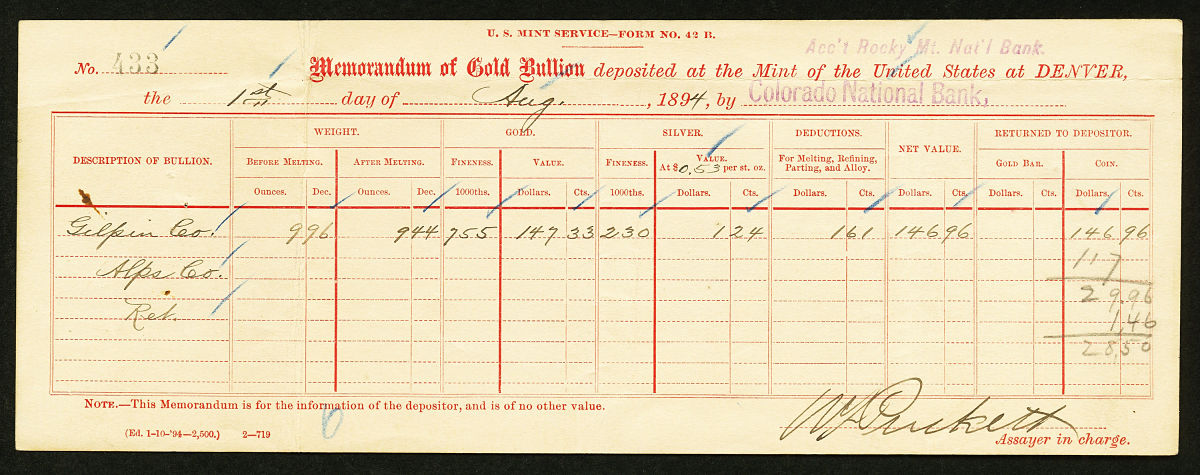 U. S. MINT SERVICE—FORM NO. 42 B.
Acc't Rocky Mt. Nat'l Bank.
No. 433 Memorandum of Gold Bullion deposited at the Mint of the United States at DENVER,
the 1st day of Aug. , 1894, by Colorado National Bank,
DESCRIPTION OF BULLION. WEIGHT. GOLD. SILVER. DEDUCTIONS. NET VALUE. RETURNED TO DEPOSITOR.
BEFORE MELTING. AFTER MELTING. FINENESS. VALUE. FINENESS. VALUE. At $0.53 per st. oz. For Melting, Refining, Parting, and Alloy. GOLD BAR. COIN.
Ounces. Dec. Ounces. Dec. 1000ths. Dollars. Cts. 1000ths. Dollars. Cts. Dollars. Cts. Dollars. Cts. Dollars. Cts. Dollars. Cts.
Gilpin Co. 9 96 9 44 755 147 33 230 1 24 1 61 146 96 146 96
Alps Co. 117
29.96
Ret. 1.46
28.50
NOTE.—This Memorandum is for the information of the depositor, and is of no other value.
(Ed. 1-10-'94—2,500.) 2—719
6
Puckett
Assayer in charge.